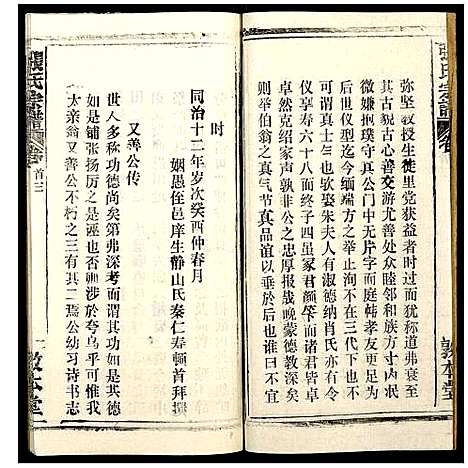 張氏宗譜
敦本堂
弥坚教授生徒里党获益者时过而犹称道弗衰
其古貌古心善交游尤善处众睦邻和族方寸内泯
微嫌抱璞守真公门中无片字而庭帏孝友更无间
然也型仪顾今缅端方之举止洵不在三代下也不
可谓真士也欤娶朱夫人有淑德纳肖氏亦有令
仪享寿六十八而终子四虽冢君颜
非公之忠厚报哉晚蒙德教深矣
然老克绍家声孰
则举伯翁之真气节真品谊以为序
时
同治十二年岁次癸酉仲春月
姻愚侄邑庠生静山氏秦仁寿顿首拜撰
又善公传
世人多称功德尚矣第弗深考而谓其功如是其德
如是铺张扬厉之是诬也否则涉於夸乌乎可哉惟
太亲翁又善公不朽之三有其二焉公幼习诗书志
張氏宗譜
卷首三
一
敦本堂